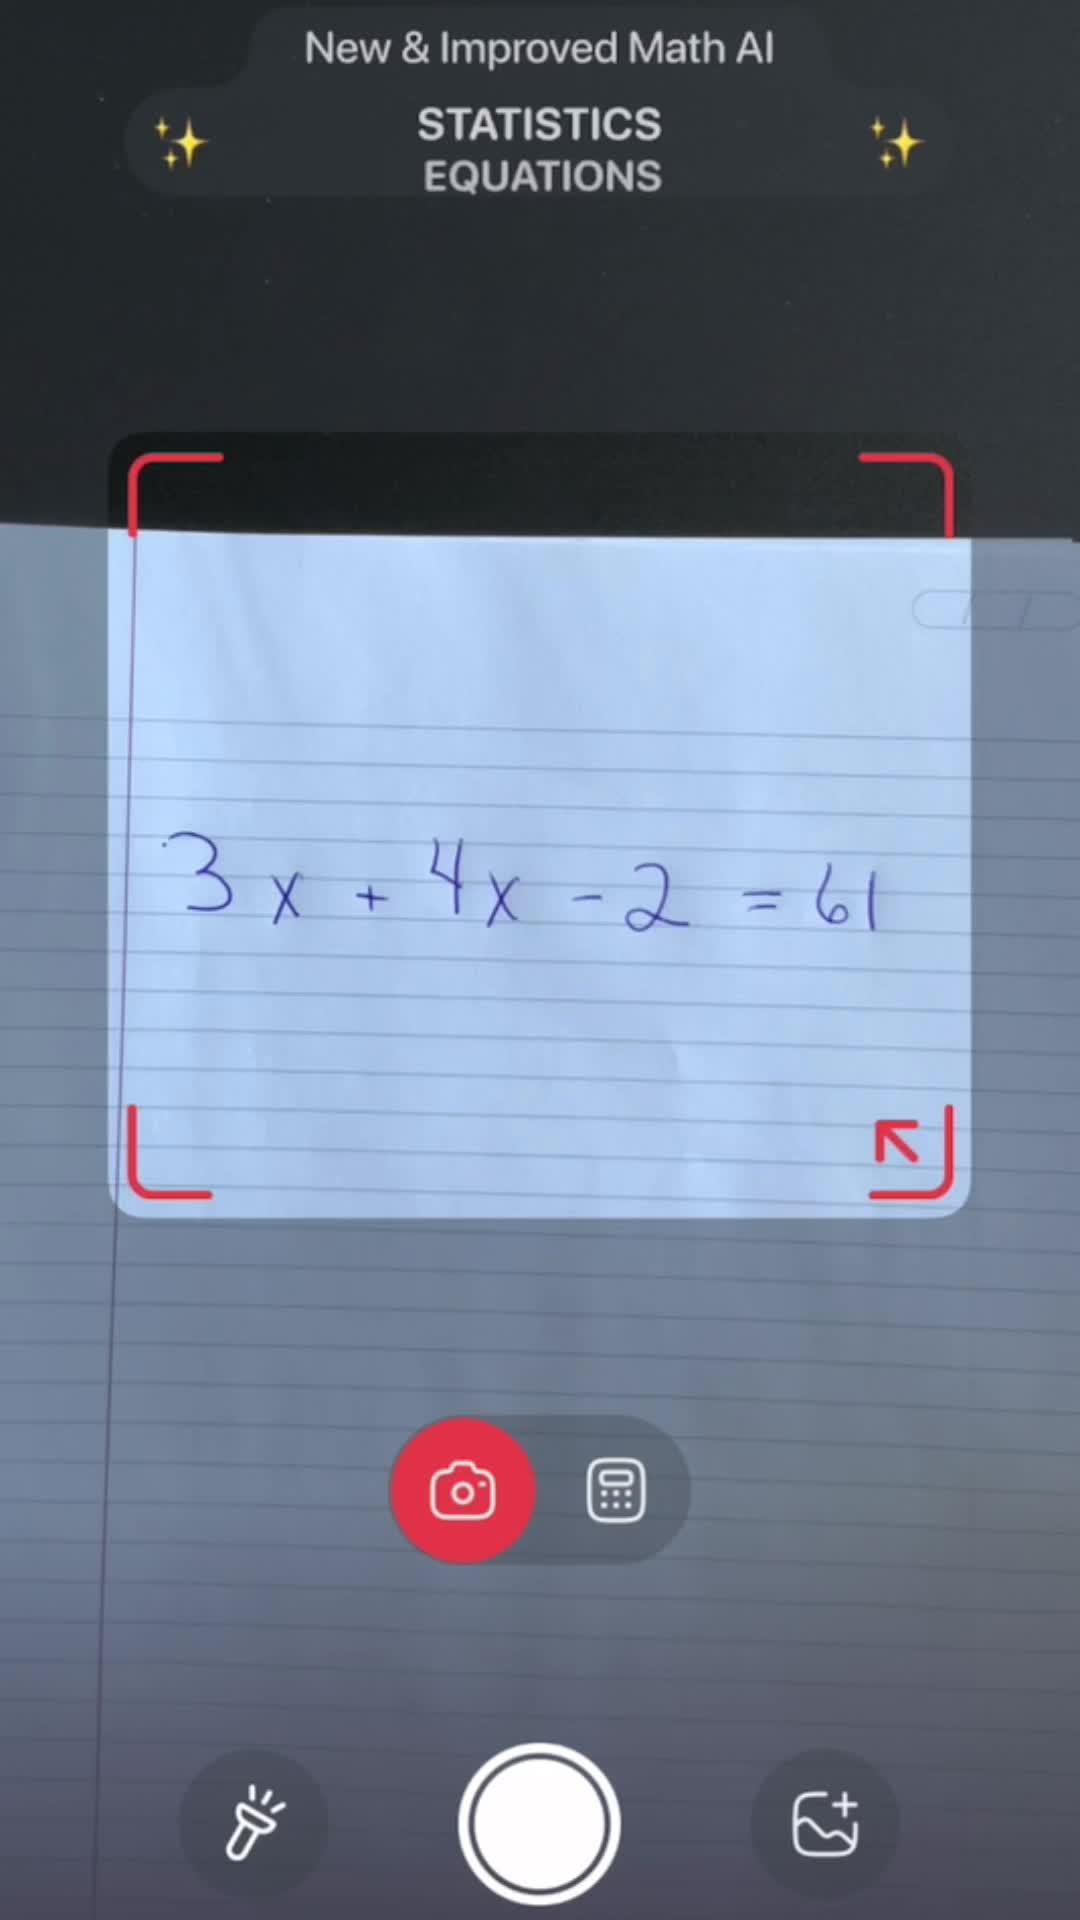 New & Improved Math AI
STATISTICS
EQUATIONS
3x + 4x - 2 = 61